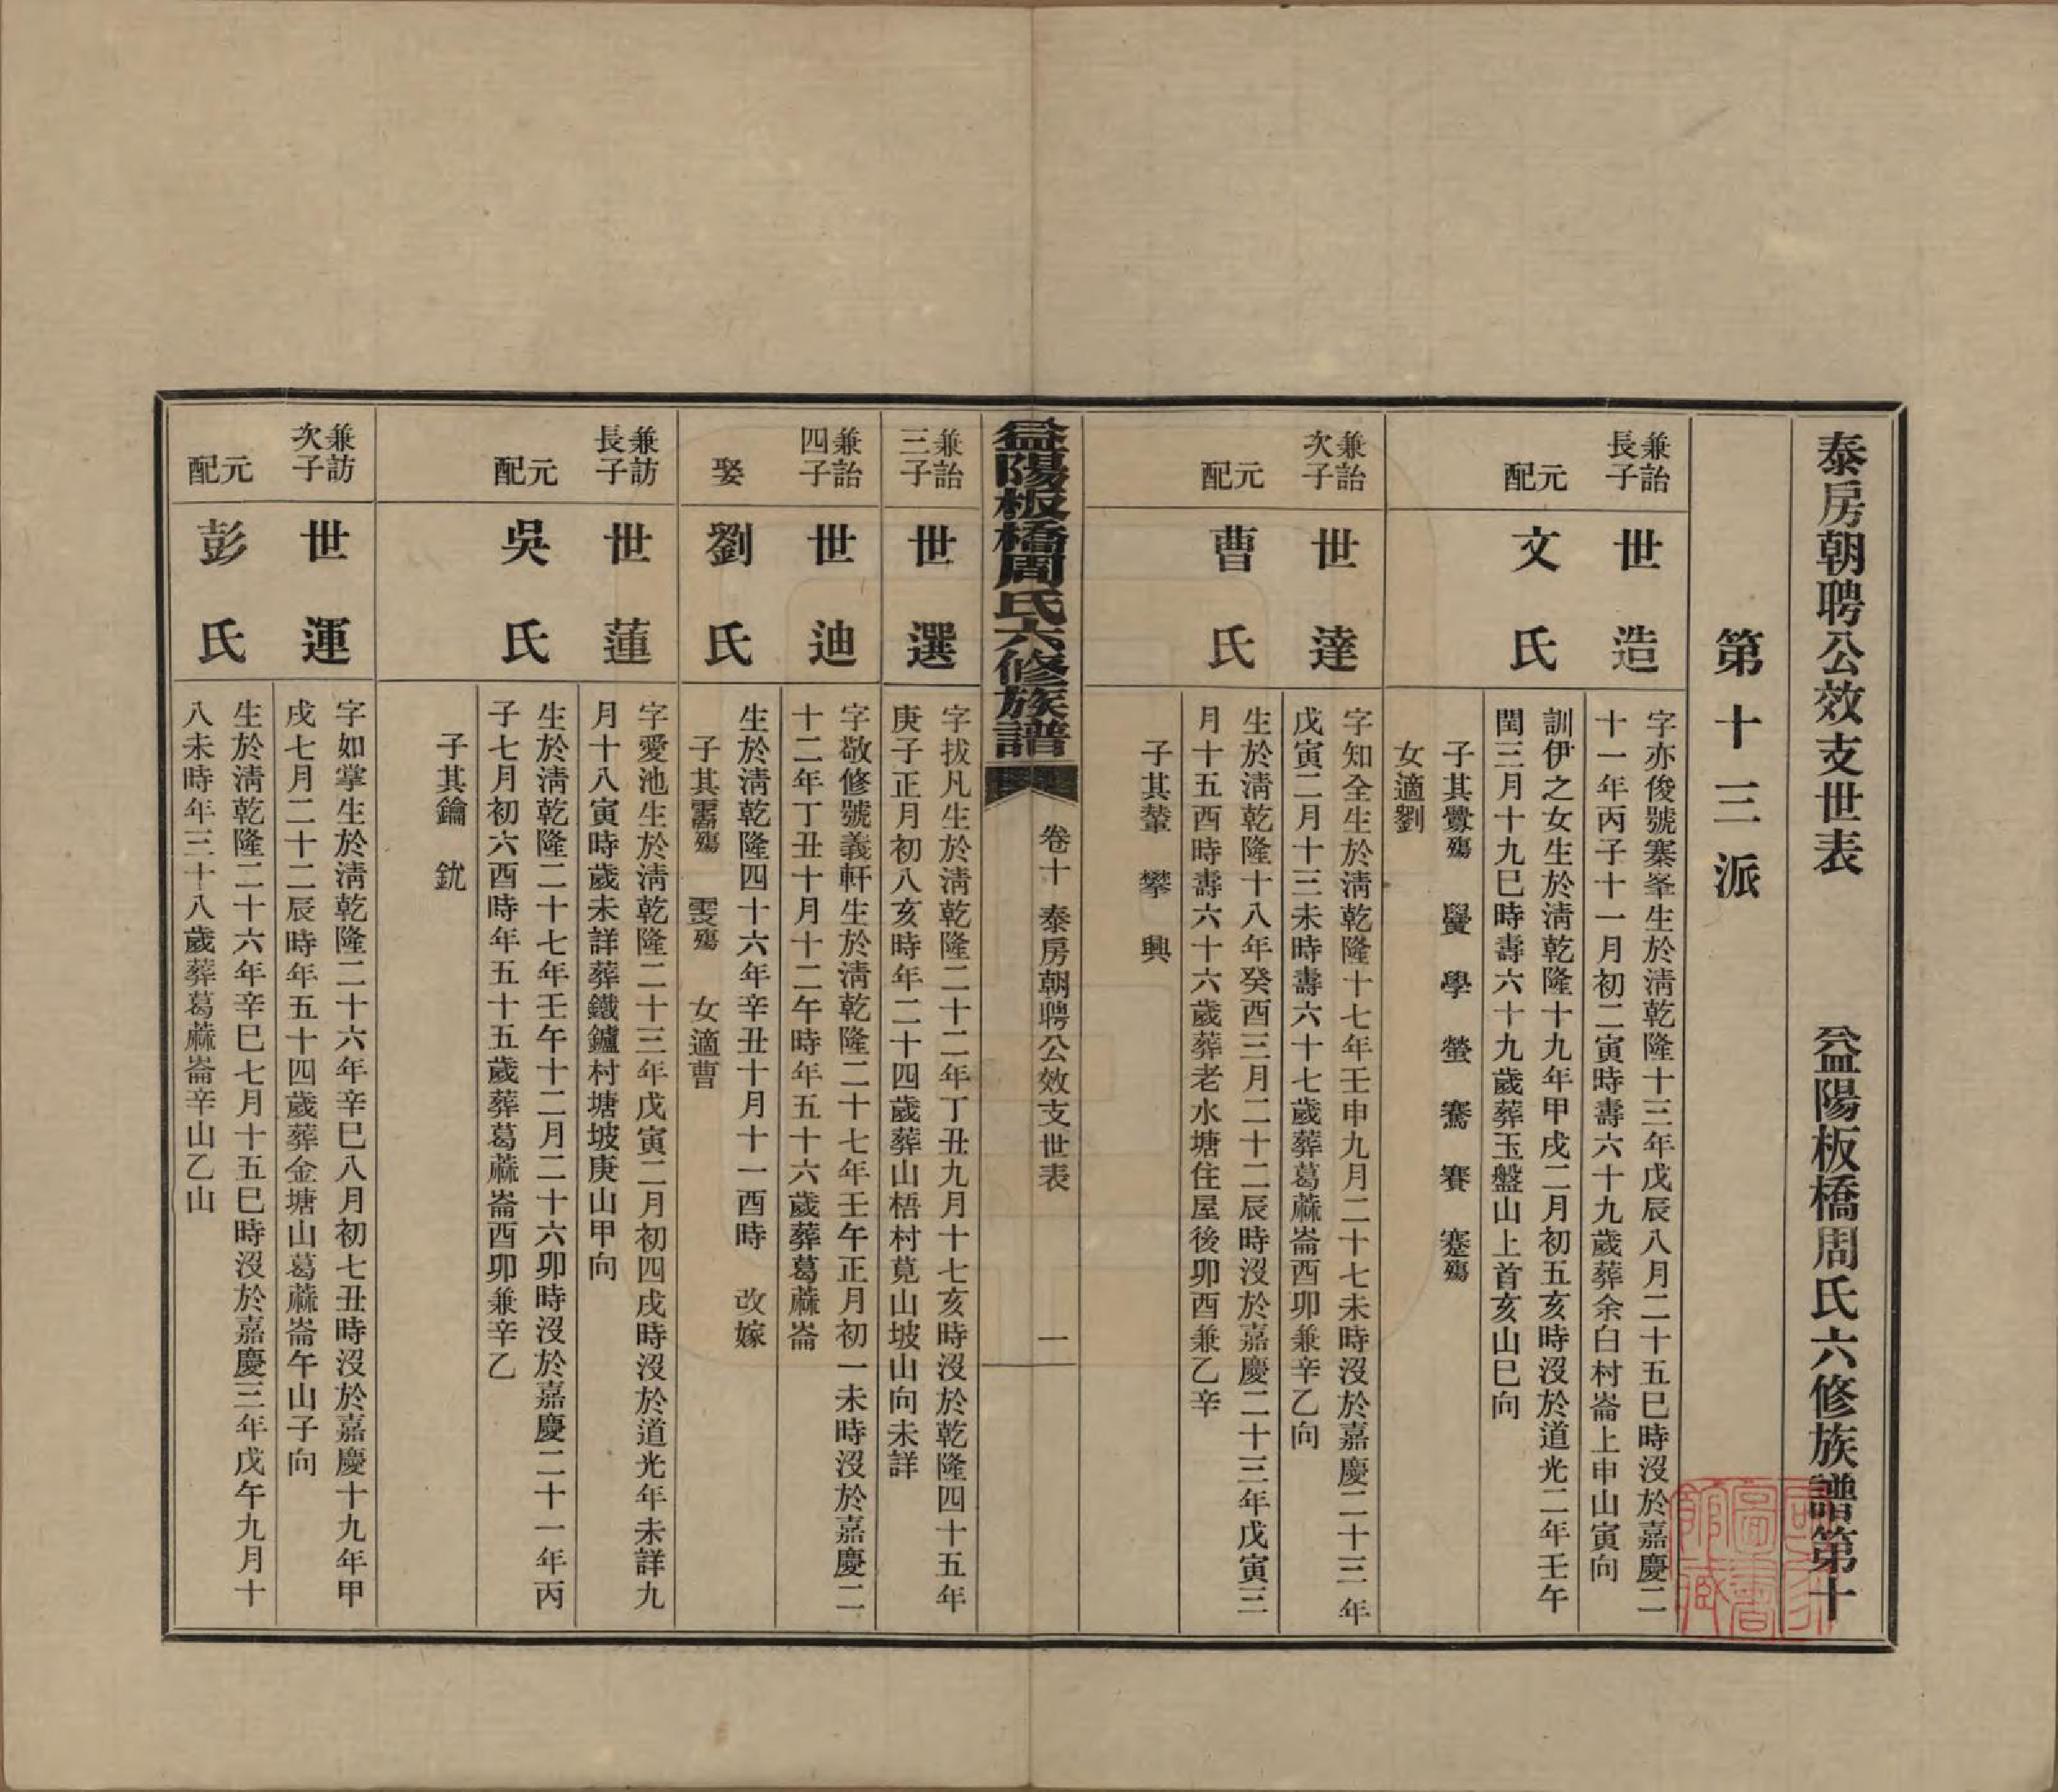 泰房朝聘公效支世表
益陽板橋周氏六修族譜第十
第十三派
兼詒
長子
世造
字亦俊號寨峯生於淸乾隆十三年戊辰八月二十五巳時沒於嘉慶二
十一年丙子十一月初二寅時壽六十九歲葬余白村崙上申山寅向
元配
文氏
訓伊之女生於淸乾隆十九年甲戌二月初五亥時沒於道光二年壬午
閏三月十九巳時壽六十九歲葬玉盤山上首亥山巳向
子其 殤 學 螢 騫 賽 蹇殤
女適劉
兼詒
次子
世達
字知全生於淸乾隆十七年壬申九月二十七未時沒於嘉慶二十三年
戊寅二月十三未時壽六十七歲葬葛蔴崙酉卯兼辛乙向
元配
曹氏
生於淸乾隆十八年癸酉三月二十二辰時沒於嘉慶二十三年戊寅三
月十五酉時壽六十六歲葬老水塘住屋後卯酉兼乙辛
子其輦 攀 興
益陽板橋周氏六修族譜
卷十 泰房朝聘公效支世表
一
兼詒
三子
世選
字拔凡生於淸乾隆二十二年丁丑九月十七亥時沒於乾隆四十五年
庚子正月初八亥時年二十四歲葬山梧村莧山坡山向未詳
兼詒
四子
世迪
字敬修號義軒生於淸乾隆二十七年壬午正月初一未時沒於嘉慶二
十二年丁丑十月十二午時年五十六歲葬葛蔴崙
娶
劉氏
生於淸乾隆四十六年辛丑十月十一酉時 改嫁
子其 殤 雯殤 女適曹
兼訪
長子
世蓮
字愛池生於淸乾隆二十三年戊寅二月初四戌時沒於道光年未詳九
月十八寅時歲未詳葬鐵鑪村塘坡庚山甲向
元配
吳氏
生於淸乾隆二十七年壬午十二月二十六卯時沒於嘉慶二十一年丙
子七月初六酉時年五十五歲葬葛蔴崙酉卯兼辛乙
子其鑰 鈂
兼訪
次子
世運
字如掌生於淸乾隆二十六年辛巳八月初七丑時沒於嘉慶十九年甲
戌七月二十二辰時年五十四歲葬金塘山葛蔴崙午山子向
元配
彭氏
生於淸乾隆二十六年辛巳七月十五巳時沒於嘉慶三年戊午九月十
八未時年三十八歲葬葛蔴崙辛山乙山